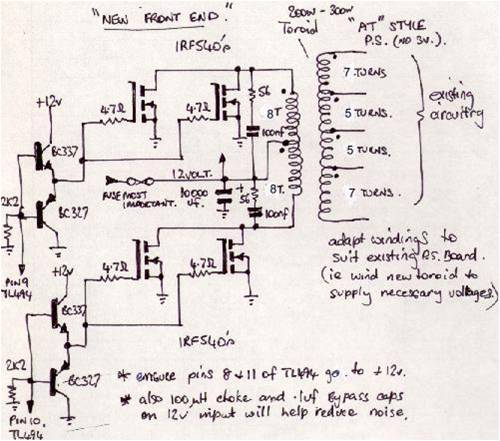 "NEW FRONT END."
200W - 300W
Toroid
"AT" STYLE
P.S. (NO 3V.)
IRF540'S
+12V
4.7Ω
4.7Ω
56
8T
100nf
7 TURNS
5 TURNS.
5 TURNS.
7 TURNS.
existing
circuitry
BC337
BC327
2K2
12VOLT.
FUSE MOST
IMPORTANT.
10000
uf.
+
56
100nf
8T.
PIN 9
TL494
+12V
4.7Ω
4.7Ω
adapt windings to
suit existing P.S. Board.
(ie wind new toroid to
supply necessary voltages.)
BC337
BC327
2K2
IRF540'S
PIN 10.
TL494
* ensure pins 8 & 11 of TL494 go to +12v.
* also 100µH choke and .1uf Bypass caps
on 12V input will help reduce noise.